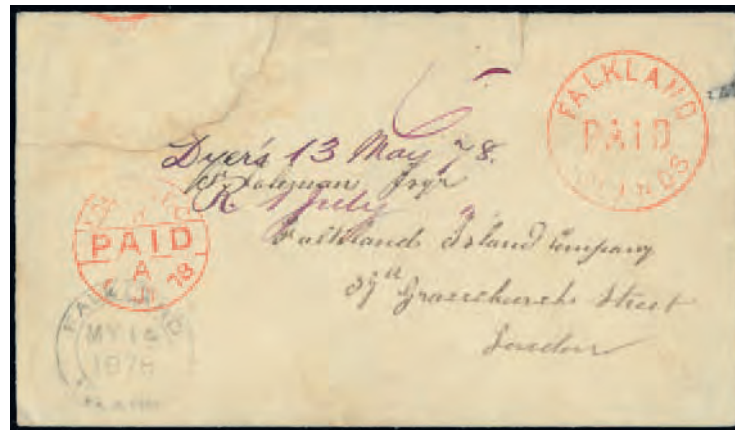 FALKLAND
PAID
ISLANDS
Dyer's 13 May 78.
Coleman Esqr
R 1 July
Falkland Island Company
Gracechurch Street
London
PAID
A
78
FALKLAND
MY 14
1878